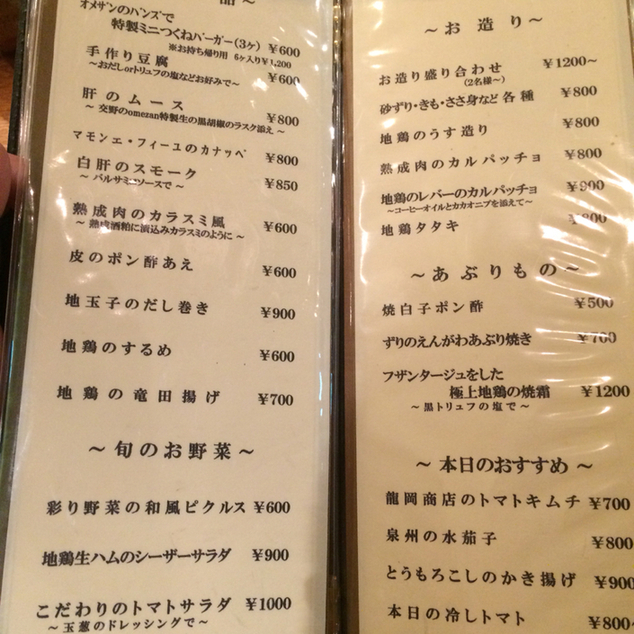 品～
オメザンのハンズで
特製ミニつくねバーガー(3ヶ) ¥600
※お持ち帰り用 6ヶ入り¥1,200
手作り豆腐 ¥600
～おだしorトリュフの塩などお好みで～
肝のムース ¥800
～交野のomezan特製生の黒胡椒のラスク添え～
マモンエ・フィーユのカナッペ ¥800
白肝のスモーク ¥850
～バルサミコソースで～
熟成肉のカラスミ風 ¥600
～熟成酒粕に漬込みカラスミのように～
皮のポン酢あえ ¥600
地玉子のだし巻き ¥900
地鶏のするめ ¥600
地鶏の竜田揚げ ¥700
～旬のお野菜～
彩り野菜の和風ピクルス ¥600
地鶏生ハムのシーザーサラダ ¥900
こだわりのトマトサラダ ¥1000
～玉葱のドレッシングで～
～お造り～
お造り盛り合わせ ¥1200～
(2名様～)
砂ずり・きも・ささ身など各種 ¥800
地鶏のうす造り ¥800
熟成肉のカルパッチョ ¥800
地鶏のレバーのカルパッチョ ¥900
～コーヒーオイルとカカオニブを添えて～
地鶏タタキ ¥800
～あぶりもの～
焼白子ポン酢 ¥500
ずりのえんがわあぶり焼き ¥700
フザンタージュをした
極上地鶏の焼霜 ¥1200
～黒トリュフの塩で～
～本日のおすすめ～
龍岡商店のトマトキムチ ¥700
泉州の水茄子 ¥800
とうもろこしのかき揚げ ¥900
本日の冷しトマト ¥800